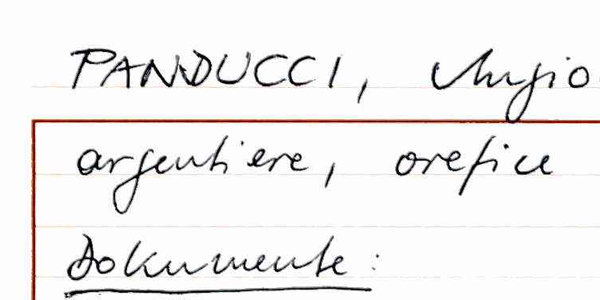 PANDUCCI, Angio
argentiere, orefice
Dokumente: